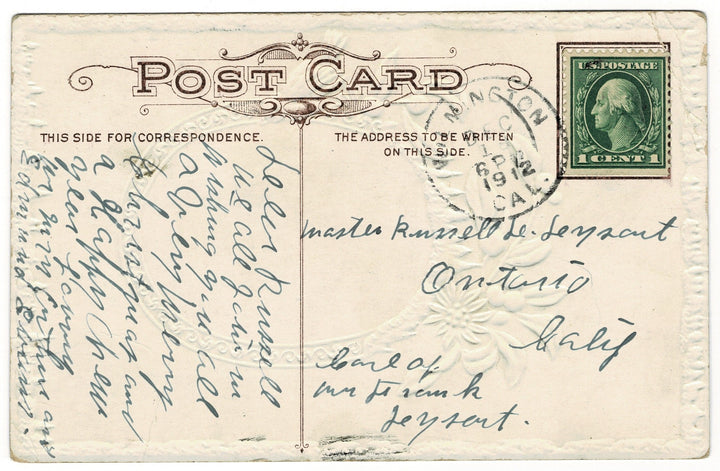 POST CARD
THIS SIDE FOR CORRESPONDENCE.
THE ADDRESS TO BE WRITTEN
ON THIS SIDE.
U.S. POSTAGE
1 CENT 1
WILMINGTON
DEC
6 PM
1912
CAL.
Dear Russell
we all join in
wishing you all
a very merry
Christmas and
a Happy New
year Loving
Edmund
Master Russell
Ontario
Calif
Care of
Mr Frank